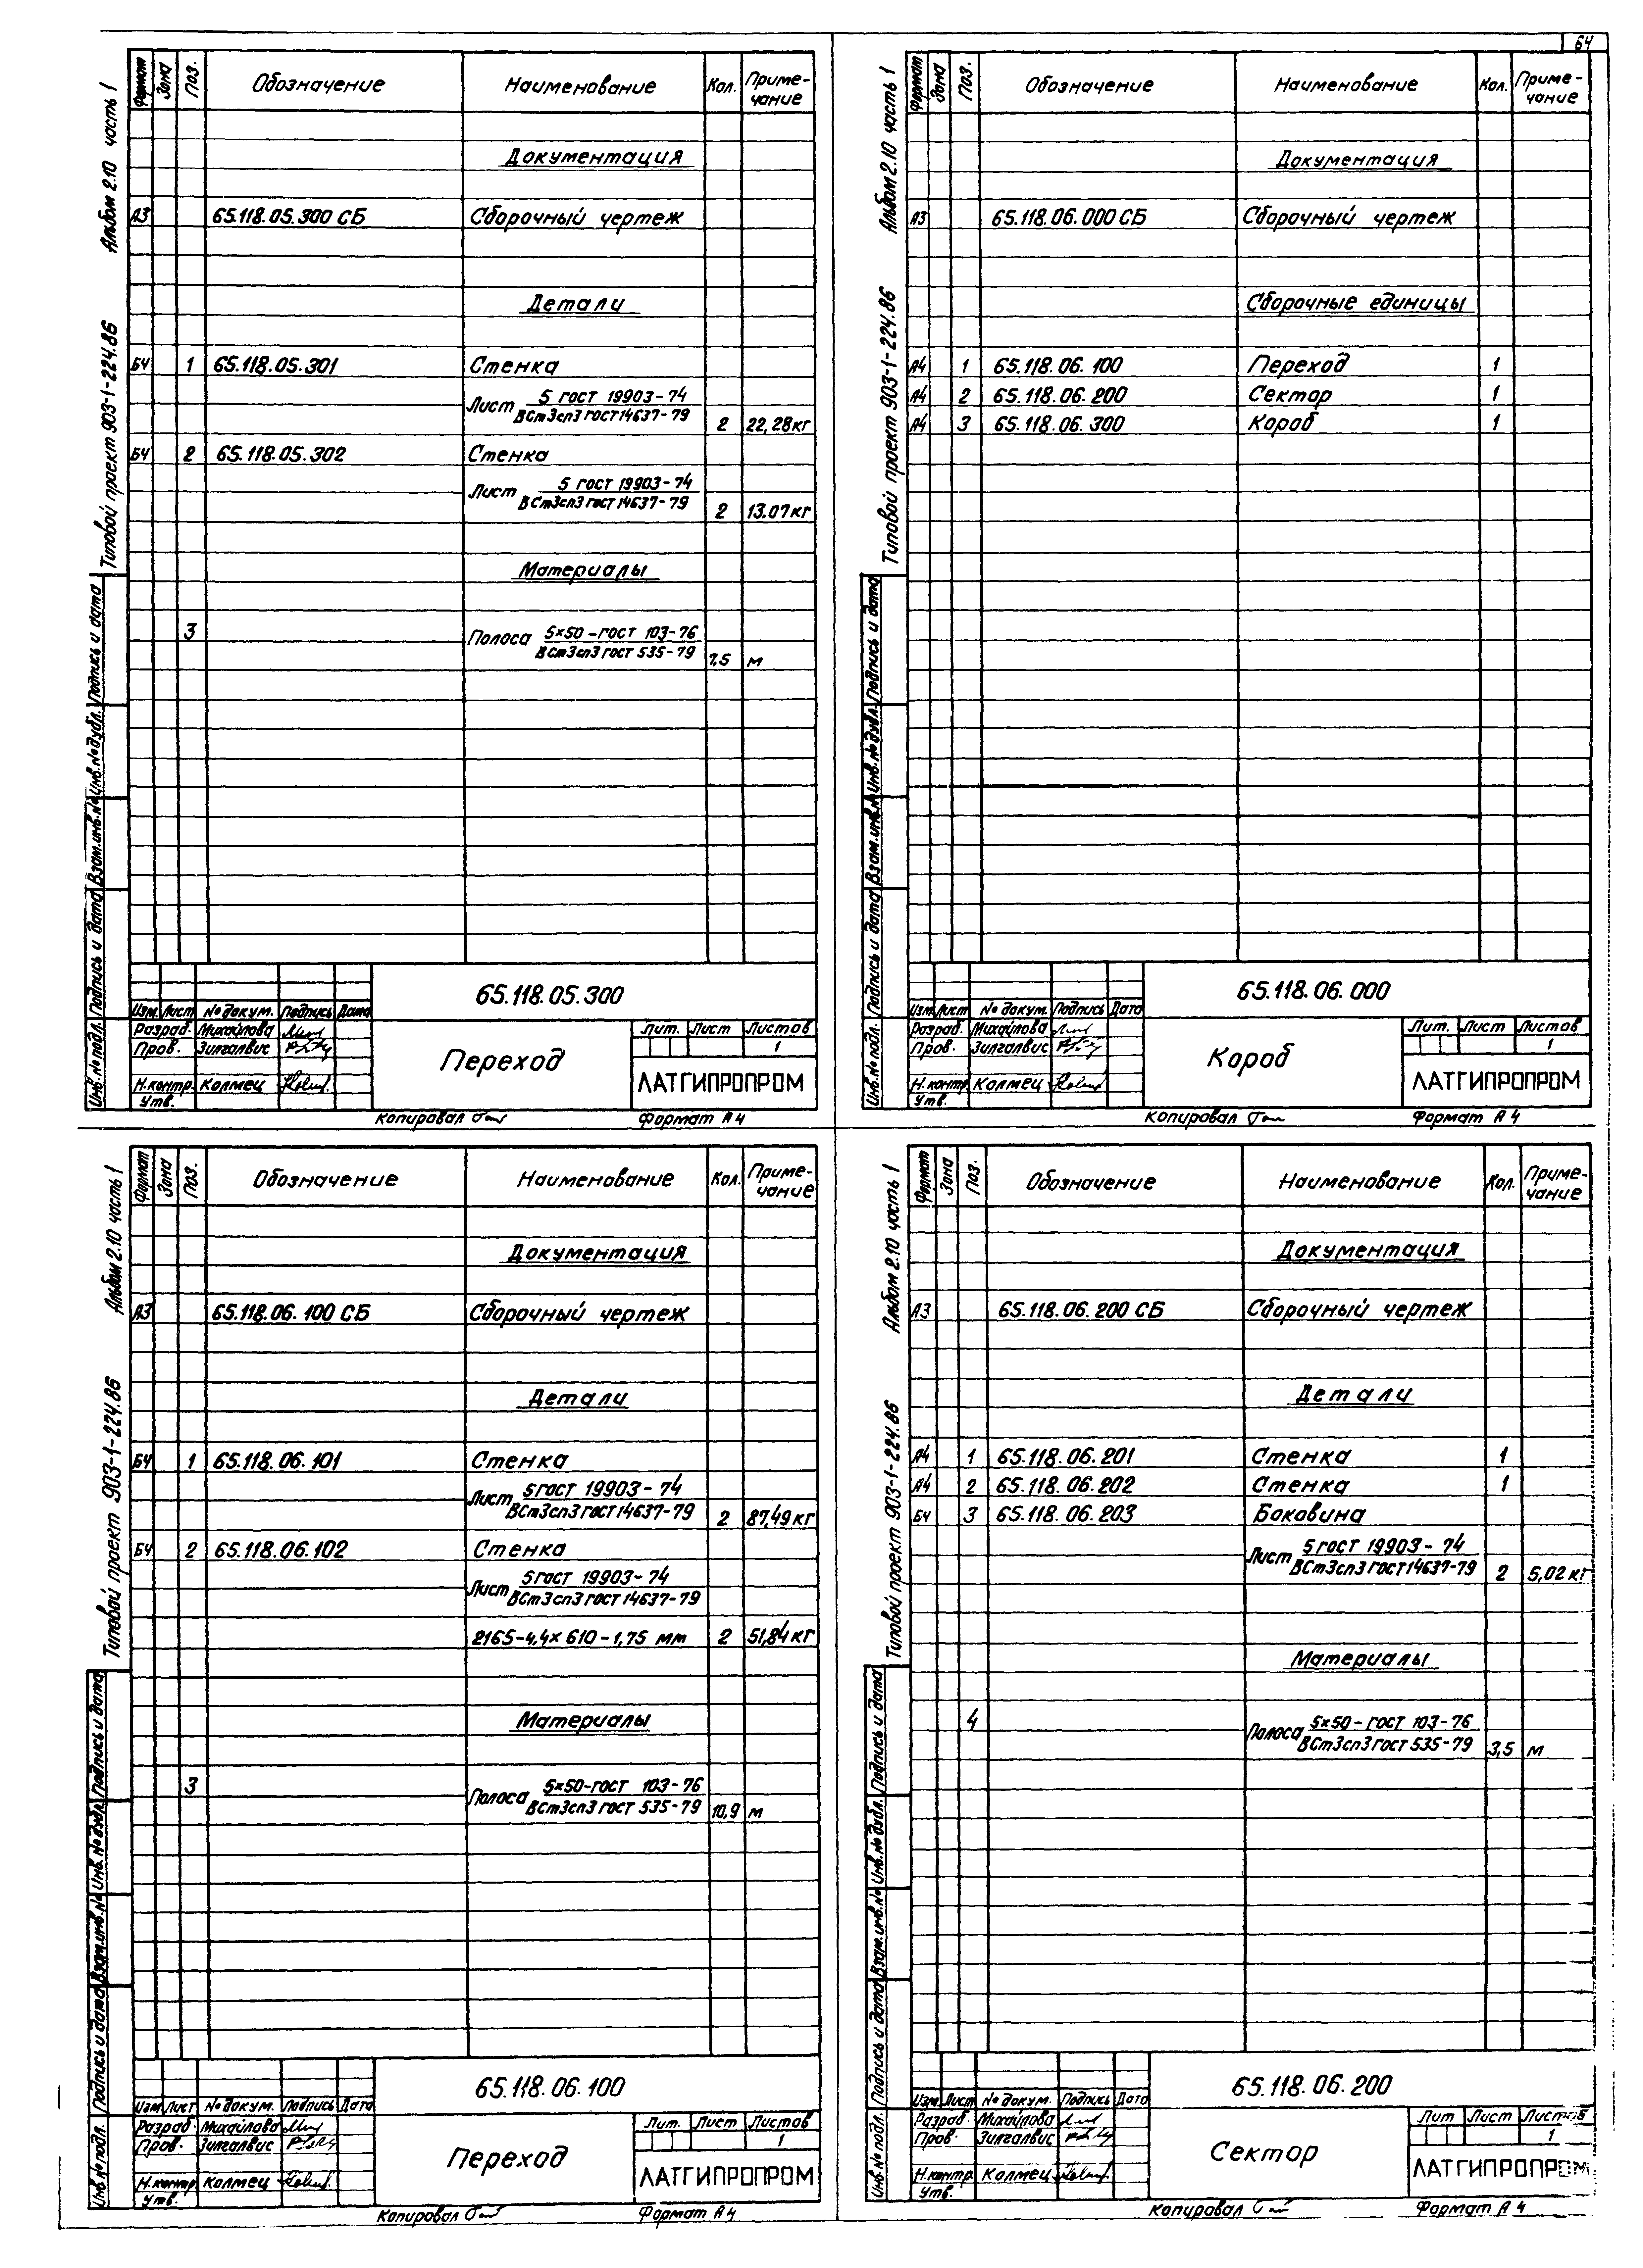 64
Альбом 2.10 часть 1
Типовой проект 903-1-224.86
Формат Зона Поз. Обозначение Наименование Кол. Приме-
чание
Документация
А3 65.118.05.300 СБ Сборочный чертеж
Детали
БЧ 1 65.118.05.301 Стенка
Лист 5 ГОСТ 19903-74
ВСт3сп3 ГОСТ 14637-79 2 22,28 кг
БЧ 2 65.118.05.302 Стенка
Лист 5 ГОСТ 19903-74
ВСт3сп3 ГОСТ 14637-79 2 13.07 кг
Материалы
3 Полоса 5×50-ГОСТ 103-76
ВСт3сп3 ГОСТ 535-79 7,5 м
Инв.№ подл. Подпись и дата Взам.инв.№ Инв.№ дубл. Подпись и дата
65.118.05.300
Изм. Лист № докум. Подпись Дата
Разраб. Михайлова
Пров. Зилгалвис
Н.контр. Колмец
Утв.
Переход
Лит. Лист Листов
1
ЛАТГИПРОПРОМ
Копировал Формат А4
Альбом 2.10 часть 1
Типовой проект 903-1-224.86
Формат Зона Поз. Обозначение Наименование Кол. Приме-
чание
Документация
А3 65.118.06.000 СБ Сборочный чертеж
Сборочные единицы
А4 1 65.118.06.100 Переход 1
А4 2 65.118.06.200 Сектор 1
А4 3 65.118.06.300 Короб 1
Инв.№ подл. Подпись и дата Взам.инв.№ Инв.№ дубл. Подпись и дата
65.118.06.000
Изм. Лист № докум. Подпись Дата
Разраб. Михайлова
Пров. Зилгалвис
Н.контр. Колмец
Утв.
Короб
Лит. Лист Листов
1
ЛАТГИПРОПРОМ
Копировал Формат А4
Альбом 2.10 часть 1
Типовой проект 903-1-224.86
Формат Зона Поз. Обозначение Наименование Кол. Приме-
чание
Документация
А3 65.118.06.100 СБ Сборочный чертеж
Детали
БЧ 1 65.118.06.101 Стенка
Лист 5 ГОСТ 19903-74
ВСт3сп3 ГОСТ 14637-79 2 87,49 кг
БЧ 2 65.118.06.102 Стенка
Лист 5 ГОСТ 19903-74
ВСт3сп3 ГОСТ 14637-79
2165-4,4×610-1,75 мм 2 51,84 кг
Материалы
3 Полоса 5×50-ГОСТ 103-76
ВСт3сп3 ГОСТ 535-79 10,9 м
Инв.№ подл. Подпись и дата Взам.инв.№ Инв.№ дубл. Подпись и дата
65.118.06.100
Изм Лист № докум. Подпись Дата
Разраб. Михайлова
Пров. Зилгалвис
Н.контр. Колмец
Утв.
Переход
Лит. Лист Листов
1
ЛАТГИПРОПРОМ
Копировал Формат А4
Альбом 2.10 часть 1
Типовой проект 903-1-224.86
Формат Зона Поз. Обозначение Наименование Кол. Приме-
чание
Документация
А3 65.118.06.200 СБ Сборочный чертеж
Детали
А4 1 65.118.06.201 Стенка 1
А4 2 65.118.06.202 Стенка 1
БЧ 3 65.118.06.203 Боковина
Лист 5 ГОСТ 19903-74
ВСт3сп3 ГОСТ 14637-79 2 5,02 кг
Материалы
4 Полоса 5×50-ГОСТ 103-76
ВСт3сп3 ГОСТ 535-79 3,5 м
Инв.№ подл. Подпись и дата Взам.инв.№ Инв.№ дубл. Подпись и дата
65.118.06.200
Изм. Лист № докум. Подпись Дата
Разраб. Михайлова
Пров. Зилгалвис
Н.контр. Колмец
Утв.
Сектор
Лит Лист Листов
1
ЛАТГИПРОПРОМ
Копировал Формат А4